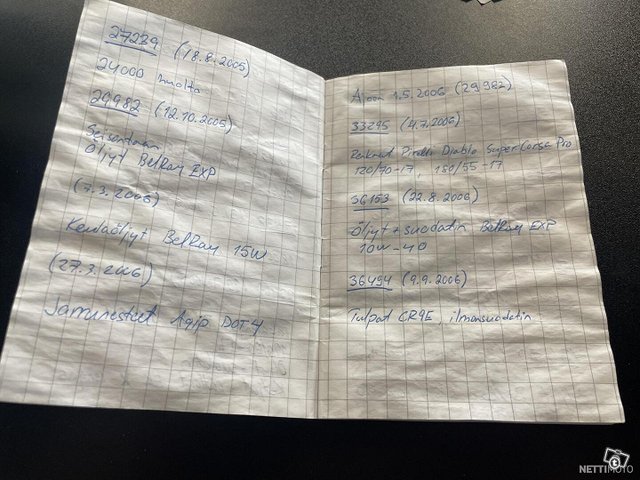 27289 (18.8.2005)
24000 huolto
29982 (12.10.2005)
Seisontaan
Öljyt BelRay EXP
(7.3.2006)
Keulaöljyt BelRay 15W
(27.3.2006)
Jarrunesteet Agip DOT4
Ajoon 1.5.2006 (29.982)
33295 (4.7.2006)
Renkaat Pirelli Diablo SuperCorsa Pro
120/70-17, 180/55-17
36153 (22.8.2006)
Öljyt + suodatin BelRay EXP
10W-40
36494 (9.9.2006)
Tulpat CR9E, ilmansuodatin
NETTIMOTO